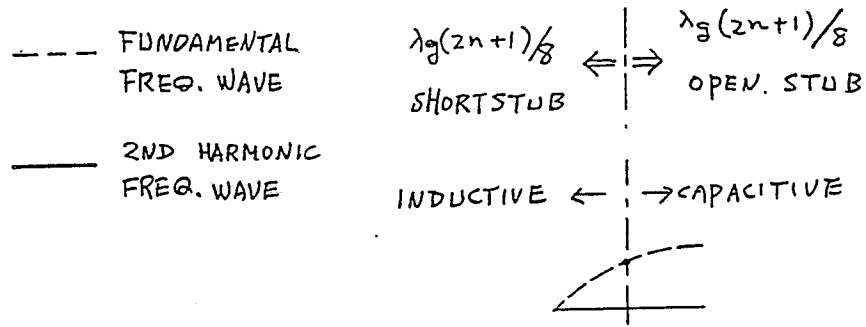 FUNDAMENTAL
FREQ. WAVE
2ND HARMONIC
FREQ. WAVE
λg(2n+1)/8
SHORT STUB
λg(2n+1)/8
OPEN. STUB
INDUCTIVE ← → CAPACITIVE